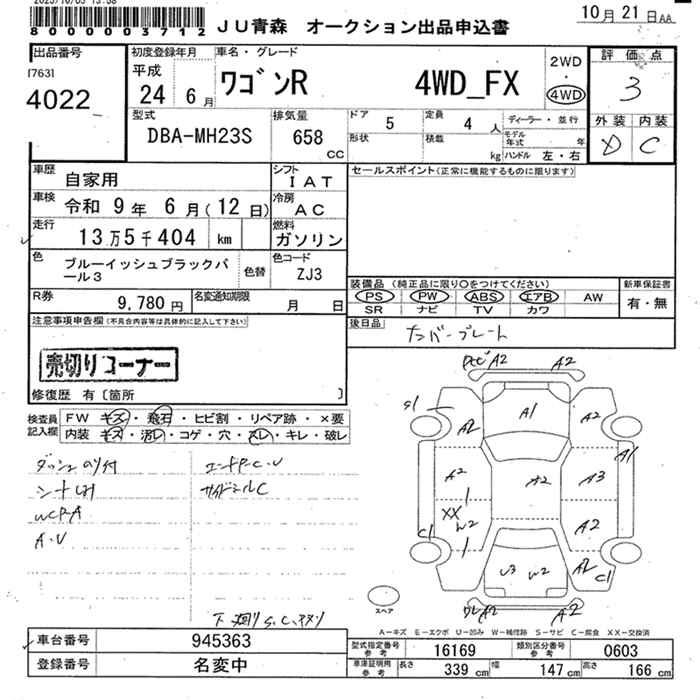 80000003712
JU青森 オークション出品申込書
10月21日AA
出品番号
17631
4022
初度登録年月
平成
24 6月
車名・グレード
ワゴンR 4WD_FX
2WD
・
4WD
評価点
3
外装 内装
D C
型式
DBA-MH23S
排気量
658
CC
ドア
5
定員
4人
形状
積載
kg
ディーラー・並行
モデル年式 年
ハンドル 左・右
車歴
自家用
シフト
IAT
車検
令和 9年 6月(12日)
冷房
AC
走行
13万5千404 km
燃料
ガソリン
色
ブルーイッシュブラックパール3
色替
色コード
ZJ3
R券
9,780円
名変通知期限
月 日
セールスポイント(正常に機能するものに限ります)
装備品(純正品に限り○をつけてください)
PS PW ABS エアB AW
SR ナビ TV カワ
新車保証書
有・無
後日品
ナンバープレート
注意事項申告欄(不具合内容等は具体的に記入して下さい)
売切りコーナー
修復歴 有〔箇所 〕
検査員記入欄
FW キズ・飛石・ヒビ割・リペア跡・×要
内装 キズ・汚レ・コゲ・穴・スレ・キレ・破レ
WCP-A
A・U
サイドミルC
A2
A2
A1
A2
A2
A1
A2
A2
A3
XX
W2
A2
C1
U3
W2
A2
C1
A2
A2
スペア
A-キズ E-エクボ U-凹み W-補修跡 S-サビ C-腐食 XX-交換済
車台番号
945363
登録番号
名変中
型式指定番号
参考
16169
類別区分番号
参考
0603
車庫証明用
参考
長さ
339 cm
幅
147 cm
高さ
166 cm